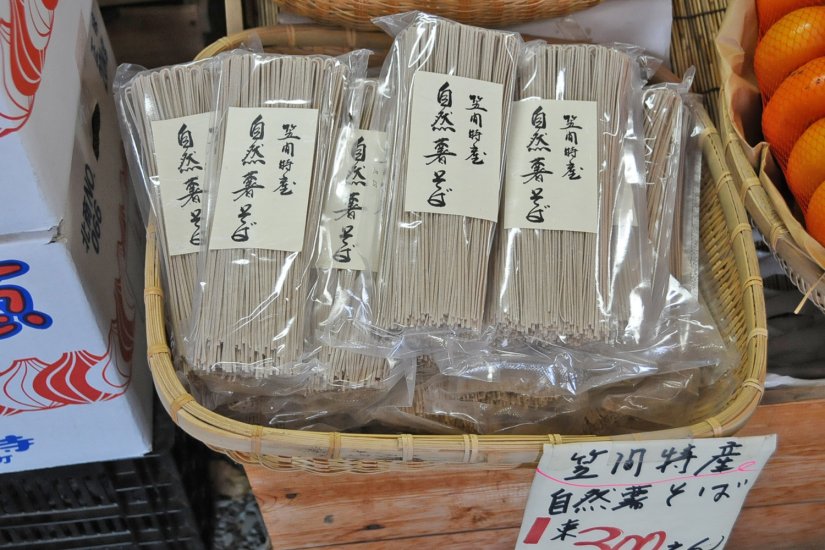 笠間特産
自然薯そば
笠間特産
自然薯そば
自然薯そば
笠間特産
自然薯そば
笠間特産
自然薯そば
笠間特産
自然薯そば
300